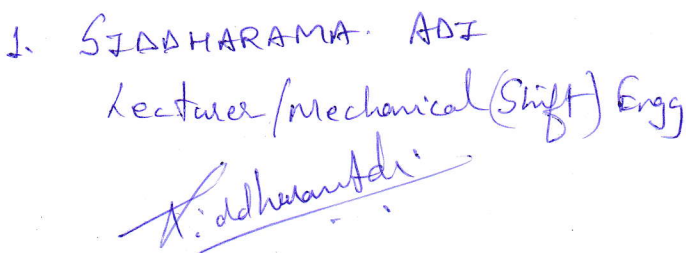 1. SIDDHARAMA. ADI
Lecturer/Mechanical(Shift) Engg
SiddharamAdi